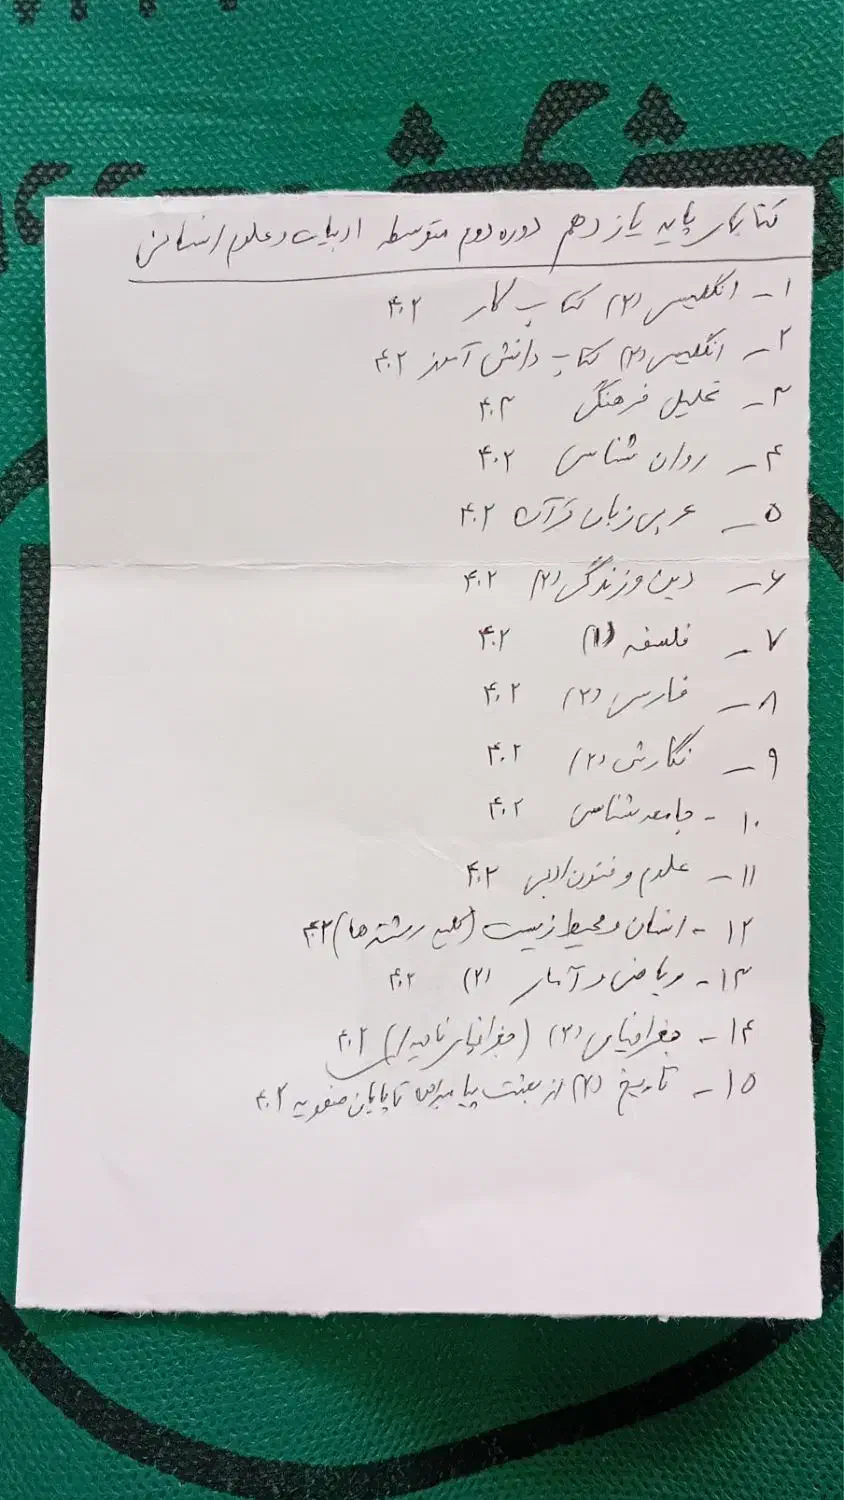 کتابهای پایه یازدهم دوره دوم متوسطه ادبیات و علوم انسانی
۱- انگلیسی (۲) کتاب کار ۴۰۲
۲- انگلیسی (۲) کتاب دانش آموز ۴۰۲
۳- تحلیل فرهنگی ۴۰۳
۴- روان شناسی ۴۰۲
۵- عربی زبان قرآن ۴۰۲
۶- دین و زندگی (۲) ۴۰۲
۷- فلسفه (۱) ۴۰۲
۸- فارسی (۲) ۴۰۲
۹- نگارش (۲) ۴۰۲
۱۰- جامعه شناسی ۴۰۲
۱۱- علوم و فنون ادبی ۴۰۲
۱۲- انسان و محیط زیست (کلیه رشته ها) ۴۰۲
۱۳- ریاضی و آمار (۲) ۴۰۲
۱۴- جغرافیای (۲) (جغرافیای ناحیه ای) ۴۰۲
۱۵- تاریخ (۲) از بعثت پیامبر تا پایان صفویه ۴۰۲